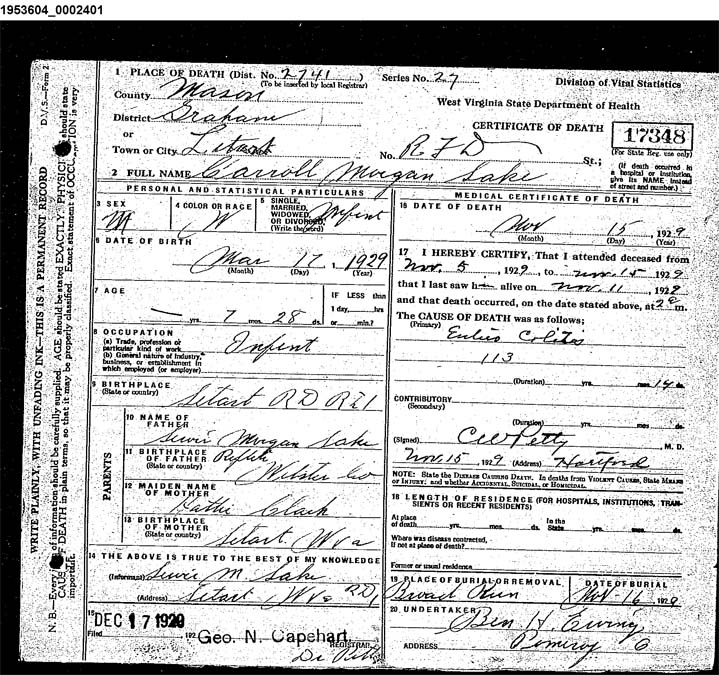 1953604_0002401
1 PLACE OF DEATH (Dist. No. 2741) Series No. 27
(To be inserted by local Registrar)
Division of Vital Statistics
County Mason
West Virginia State Department of Health
District Graham
CERTIFICATE OF DEATH
17348
(For State Reg. use only)
or
Town or City Letart No. R F D St.;
(If death occurred in a hospital or institution, give its NAME instead of street and number.)
2 FULL NAME Carroll Morgan Sake
PERSONAL AND STATISTICAL PARTICULARS
3 SEX M
4 COLOR OR RACE W
5 SINGLE, MARRIED, WIDOWED, OR DIVORCED (Write the word) Infent
6 DATE OF BIRTH
Mar 17, 1929
(Month) (Day) (Year)
7 AGE
IF LESS than 1 day, hrs or min.?
yrs. 7 mos. 28 ds.
8 OCCUPATION
(a) Trade, profession or particular kind of work
(b) General nature of industry, business, or establishment in which employed (or employer)
Infent
9 BIRTHPLACE
(State or country)
Letart RD
PARENTS
10 NAME OF FATHER
Morgan Sake
11 BIRTHPLACE OF FATHER
(State or country)
Webster Co
12 MAIDEN NAME OF MOTHER
Clark
13 BIRTHPLACE OF MOTHER
(State or country)
Letart, W Va
14 THE ABOVE IS TRUE TO THE BEST OF MY KNOWLEDGE
(Informant) M. Sake
(Address) Letart W Va RD1
15 DEC 17 1929
Filed 192 Geo. N. Capehart,
REGISTRAR
MEDICAL CERTIFICATE OF DEATH
16 DATE OF DEATH
Nov 15, 1929
(Month) (Day) (Year)
17 I HEREBY CERTIFY, That I attended deceased from
Nov. 5, 1929, to Nov 15 1929
that I last saw h alive on Nov. 11, 1929
and that death occurred, on the date stated above, at 2 m.
The CAUSE OF DEATH was as follows:
(Primary) Colites
113
(Duration) yrs. mos. 14 ds.
CONTRIBUTORY
(Secondary)
(Duration) yrs. mos. ds.
(Signed) Petty M. D.
Nov. 15, 1929 (Address) Hartford
NOTE: State the DISEASE CAUSING DEATH. In deaths from VIOLENT CAUSES, State MEANS OF INJURY; and whether ACCIDENTAL, SUICIDAL, or HOMICIDAL.
18 LENGTH OF RESIDENCE (FOR HOSPITALS, INSTITUTIONS, TRANSIENTS OR RECENT RESIDENTS)
At place of death yrs. mos. ds. In the State yrs. mos. ds.
Where was disease contracted, If not at place of death?
Former or usual residence
19 PLACE OF BURIAL OR REMOVAL DATE OF BURIAL
Broad Run Nov-16, 1929
20 UNDERTAKER Ben H. Ewing
ADDRESS Pomeroy O
D.V.S.—Form 2
WRITE PLAINLY, WITH UNFADING INK—THIS IS A PERMANENT RECORD
N. B.—Every of information should be carefully supplied. AGE should be stated EXACTLY. PHYSICI should state
CAUS OF DEATH in plain terms, so that it may be properly classified. Exact statement of OCCU TION is very
important.